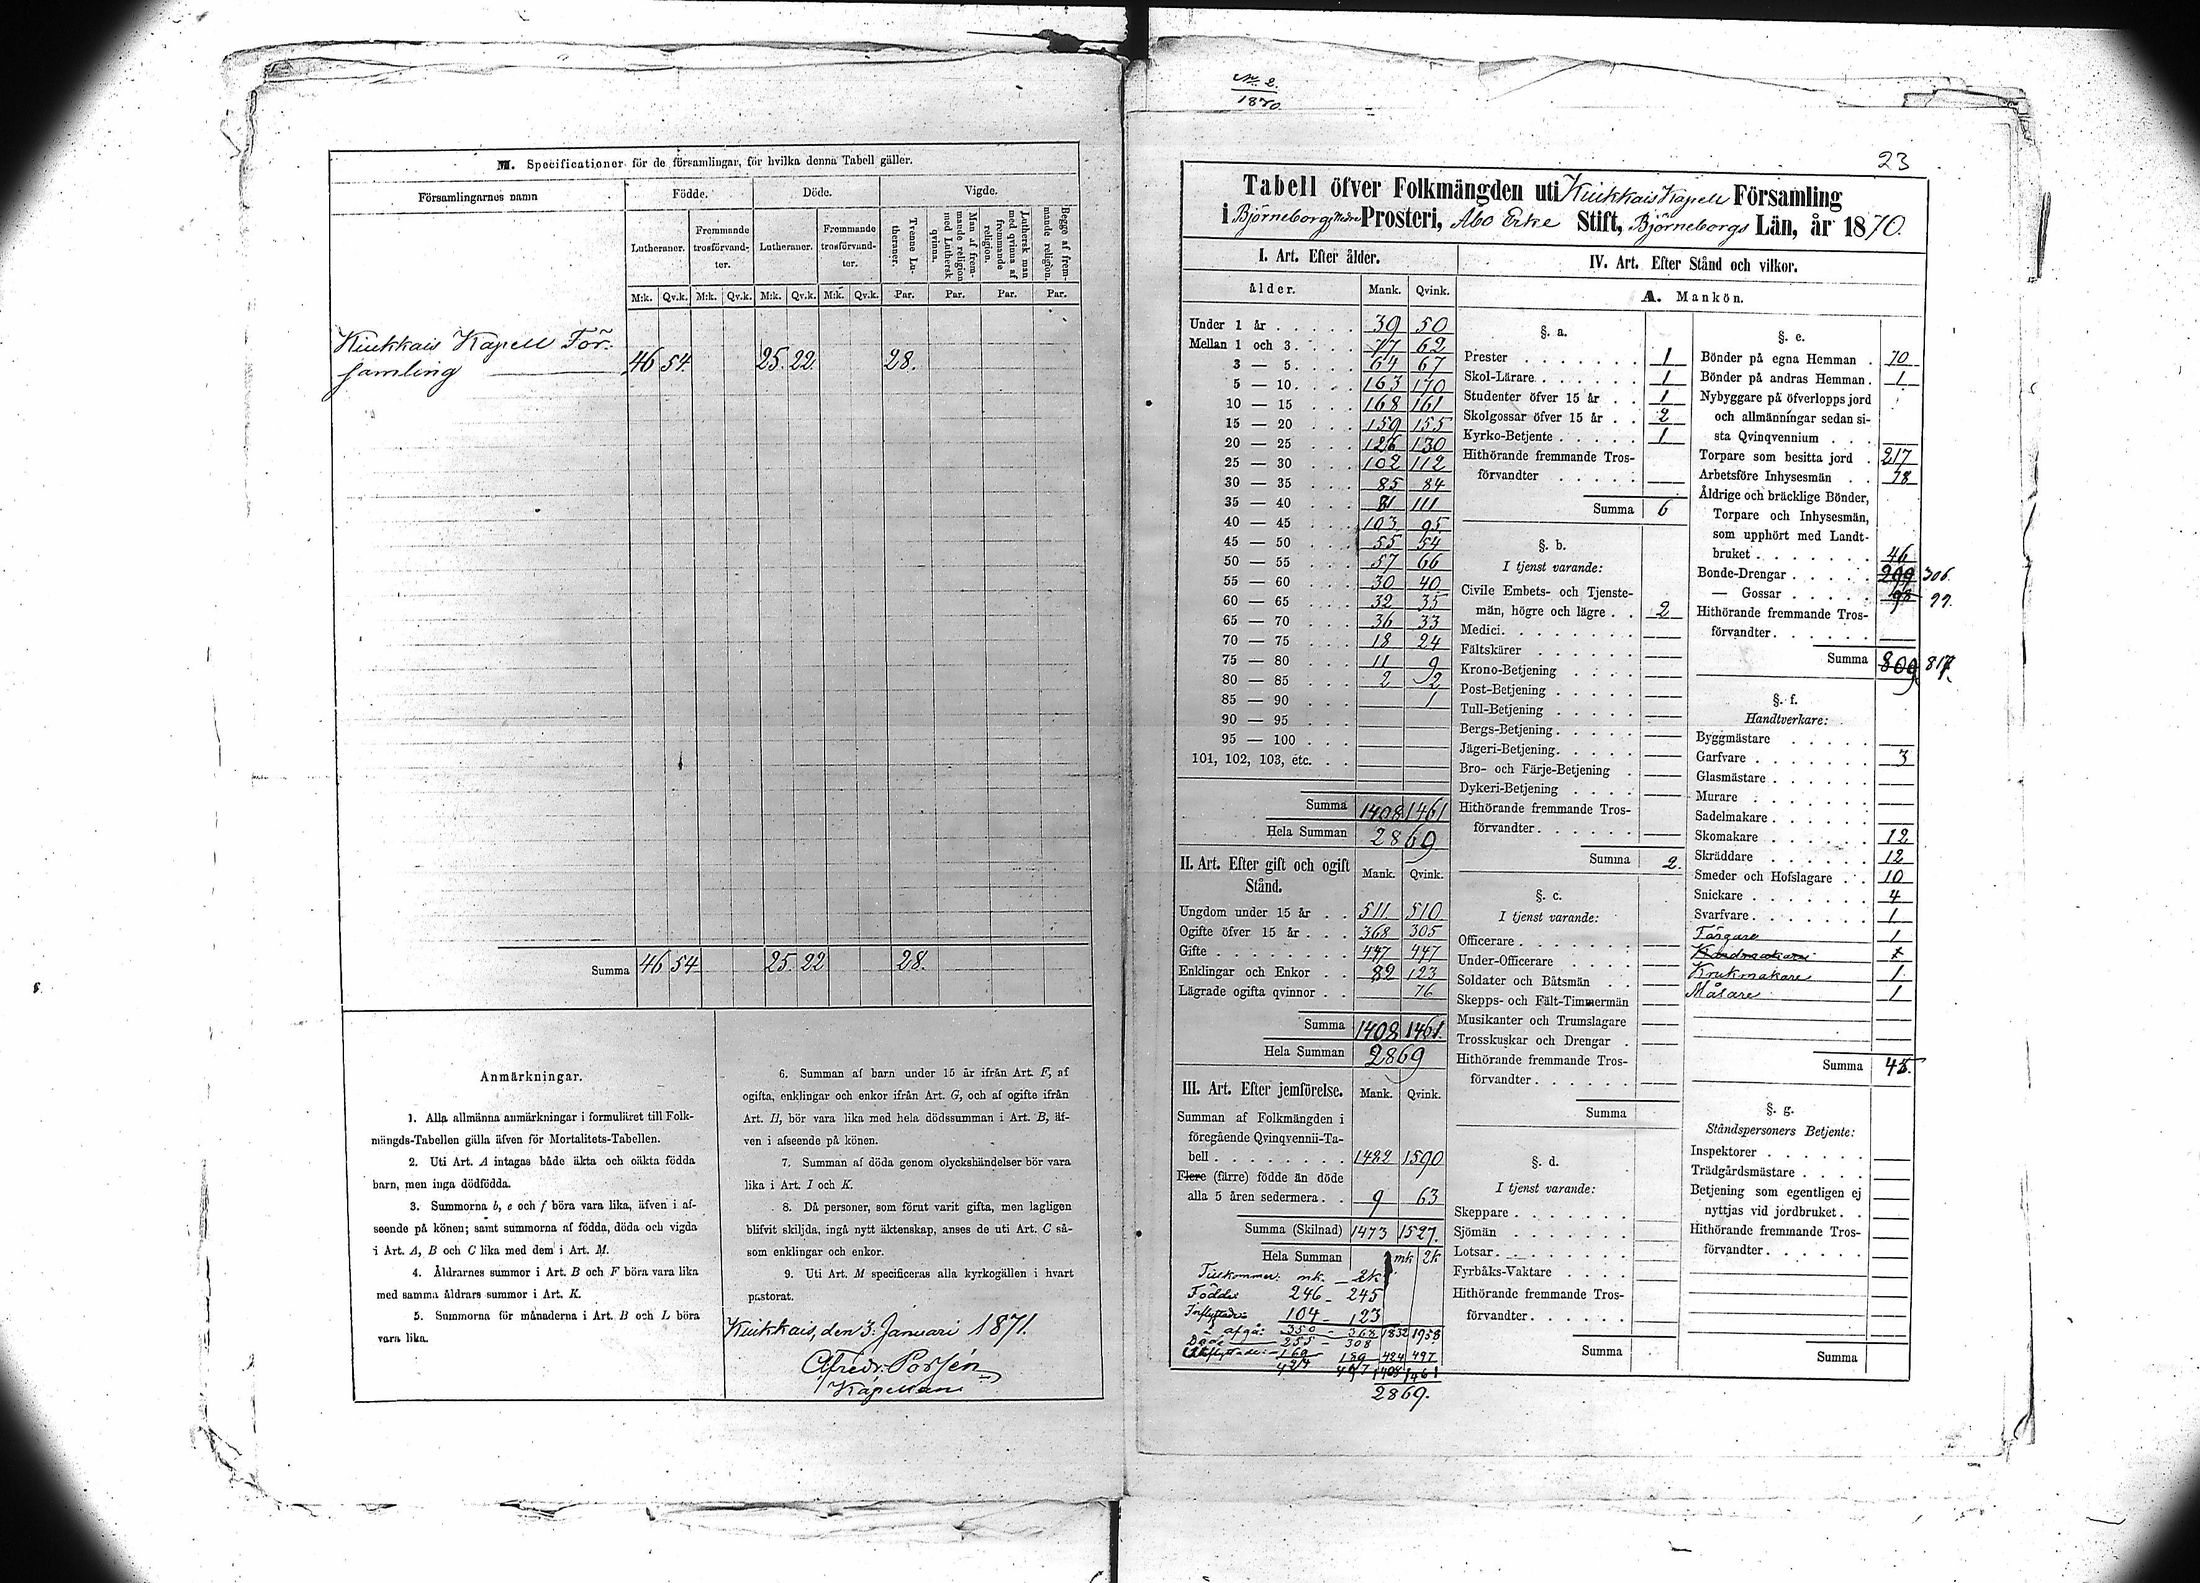 M. Specificationer för de församlingar, för hvilka denna Tabell gäller.
Församlingarnes namn
Födde.
Döde.
Vigde.
Lutheraner.
Fremmande trosförvandter.
Lutheraner.
Fremmande trosförvandter.
Tvenne Lutheraner.
Man af fremmande religion med Luthersk qvinna.
Luthersk man med qvinna af fremmande religion.
Begge af fremmande religion.
M:k. Qv.k. M:k. Qv.k. M:k. Qv.k. M:k. Qv.k. Par. Par. Par. Par.
Kiukkais Kapell För-
samling 46 54 25. 22. 28.
Summa 46 54 25. 22 28.
Anmärkningar.
1. Alla allmänna anmärkningar i formuläret till Folk-
mängds-Tabellen gälla äfven för Mortalitets-Tabellen.
2. Uti Art. A intagas både äkta och oäkta födda
barn, men inga dödfödda.
3. Summorna b, e och f böra vara lika, äfven i af-
seende på könen; samt summorna af födda, döda och vigda
i Art. A, B och C lika med dem i Art. M.
4. Åldrarnes summor i Art. B och F böra vara lika
med samma åldrars summor i Art. K.
5. Summorna för månaderna i Art. B och L böra
vara lika.
6. Summan af barn under 15 år ifrån Art. F, af
ogifta, enklingar och enkor ifrån Art. G, och af ogifte ifrån
Art. H, bör vara lika med hela dödssumman i Art. B, äf-
ven i afseende på könen.
7. Summan af döda genom olyckshändelser bör vara
lika i Art. I och K.
8. Då personer, som förut varit gifta, men lagligen
blifvit skiljda, ingå nytt äktenskap, anses de uti Art. C så-
som enklingar och enkor.
9. Uti Art. M specificeras alla kyrkogällen i hvart
pastorat.
Kiukkais, den 3. Januari 1871.
Alfredr. Porsén
Kapellan
No. 2.
1870.
23
Tabell öfver Folkmängden uti Kiukkais Kapell Församling
i Björneborgs Nedre Prosteri, Åbo Erke Stift, Björneborgs Län, år 1870.
I. Art. Efter ålder.
ålder. Mank. Qvink.
Under 1 år 39 50
Mellan 1 och 3 77 62
3 — 5 64 67
5 — 10 163 170
10 — 15 168 161
15 — 20 159 155
20 — 25 126 130
25 — 30 102 112
30 — 35 85 84
35 — 40 81 111
40 — 45 103 95
45 — 50 55 54
50 — 55 57 66
55 — 60 30 40
60 — 65 32 35
65 — 70 36 33
70 — 75 18 24
75 — 80 11 9
80 — 85 2 2
85 — 90 1
90 — 95
95 — 100
101, 102, 103, etc.
Summa 1408 1461
Hela Summan 2869
II. Art. Efter gift och ogift
Stånd. Mank. Qvink.
Ungdom under 15 år 511 510
Ogifte öfver 15 år 368 305
Gifte 447 447
Enklingar och Enkor 82 123
Lägrade ogifta qvinnor 76
Summa 1408 1461.
Hela Summan 2869
III. Art. Efter jemförelse. Mank. Qvink.
Summan af Folkmängden i
föregående Qvinqvennii-Ta-
bell 1482 1590
Flere (färre) födde än döde
alla 5 åren sedermera 9 63
Summa (Skilnad) 1473 1527.
Hela Summan mk 2k
Tillkommer: mk. — 2k
Födde 246 — 245
Inflyttade 104 — 123
afgå: 350 — 368 1832 1958
Döde 255 — 308
Utflyttade: — 169 189 424 497
424 497 1408 1461
2869.
IV. Art. Efter Stånd och vilkor.
A. Mankön.
§. a.
Prester 1
Skol-Lärare 1
Studenter öfver 15 år 1
Skolgossar öfver 15 år 2
Kyrko-Betjente 1
Hithörande fremmande Tros-
förvandter
Summa 6
§. b.
I tjenst varande:
Civile Embets- och Tjenste-
män, högre och lägre 2
Medici
Fältskärer
Krono-Betjening
Post-Betjening
Tull-Betjening
Bergs-Betjening
Jägeri-Betjening
Bro- och Färje-Betjening
Dykeri-Betjening
Hithörande fremmande Tros-
förvandter
Summa 2.
§. c.
I tjenst varande:
Officerare
Under-Officerare
Soldater och Båtsmän
Skepps- och Fält-Timmermän
Musikanter och Trumslagare
Trosskuskar och Drengar
Hithörande fremmande Tros-
förvandter
Summa
§. d.
I tjenst varande:
Skeppare
Sjömän
Lotsar
Fyrbåks-Vaktare
Hithörande fremmande Tros-
förvandter
Summa
§. e.
Bönder på egna Hemman 70
Bönder på andras Hemman 1
Nybyggare på öfverlopps jord
och allmänningar sedan si-
sta Qvinqvennium
Torpare som besitta jord 217
Arbetsföre Inhysesmän 78
Åldrige och bräcklige Bönder,
Torpare och Inhysesmän,
som upphört med Landt-
bruket 46
Bonde-Drengar 299 306.
— Gossar 98 99.
Hithörande fremmande Tros-
förvandter
Summa 809 817.
§. f.
Handtverkare:
Byggmästare
Garfvare 3
Glasmästare
Murare
Sadelmakare
Skomakare 12
Skräddare 12
Smeder och Hofslagare 10
Snickare 4
Svarfvare 1
Färgare 1
Krukmakare 1
Målare 1
Summa 45.
§. g.
Ståndspersoners Betjente:
Inspektorer
Trädgårdsmästare
Betjening som egentligen ej
nyttjas vid jordbruket
Hithörande fremmande Tros-
förvandter
Summa